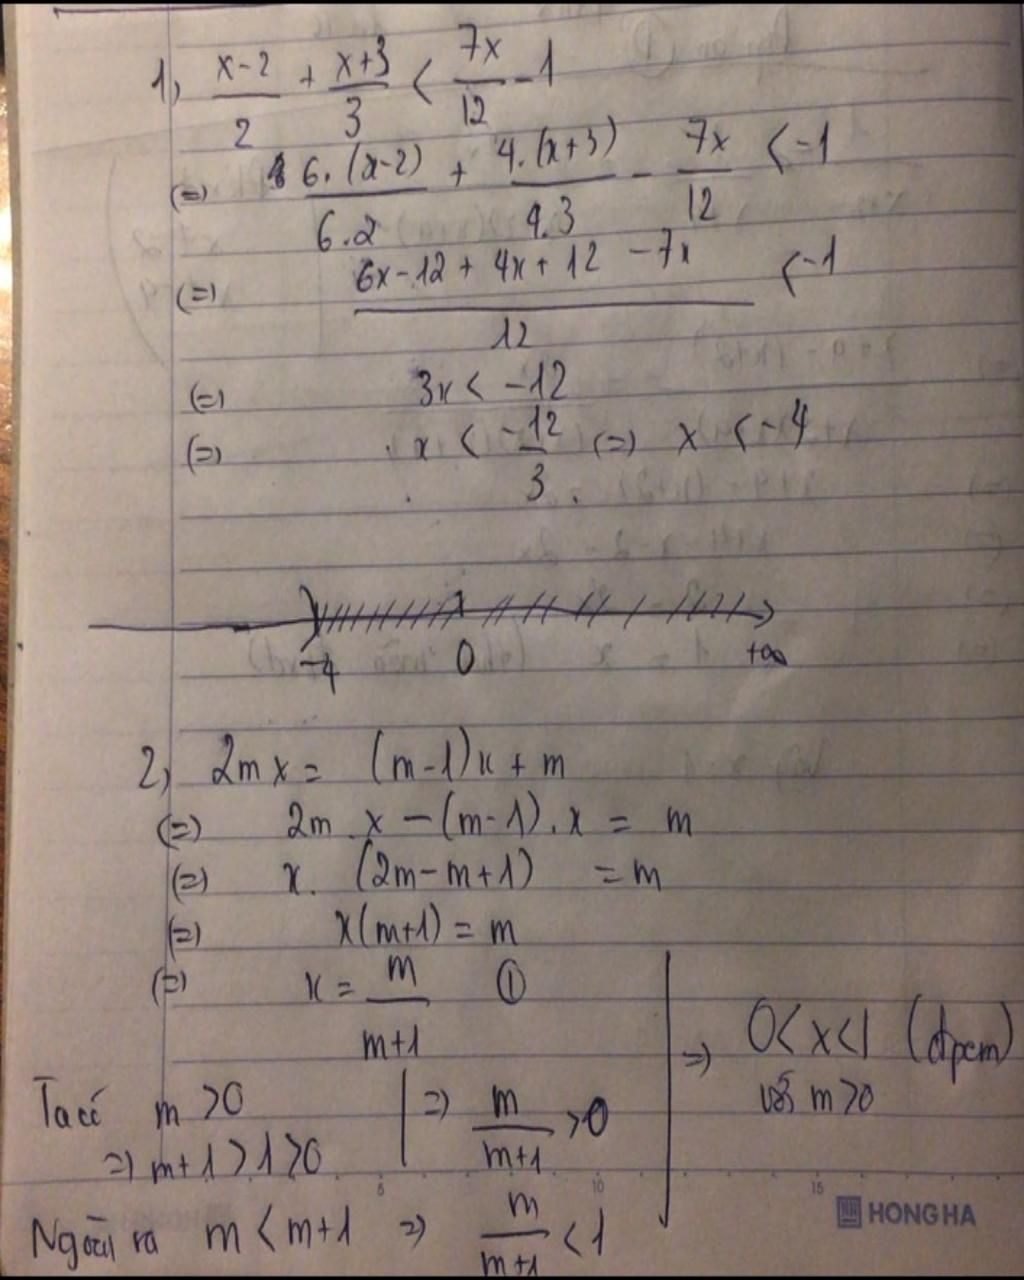 1) (x-2)/2 + (x+3)/3 < 7x/12 - 1
(=) 6.(x-2)/6.2 + 4.(x+3)/4.3 - 7x/12 < -1
(=) (6x-12 + 4x + 12 - 7x)/12 < -1
(=) 3x < -12
(=) x < -12/3 (=) x < -4
-4 0 +∞
2) 2mx = (m-1)x + m
(=) 2m.x - (m-1).x = m
(=) x.(2m-m+1) = m
(=) x(m+1) = m
(=) x = m/(m+1) ①
Ta có m > 0
=) m+1 > 1 > 0
=) m/(m+1) > 0
Ngoài ra m < m+1 =) m/(m+1) < 1
=) 0 < x < 1 (đpcm)
với m > 0
5 10 15
HONG HA